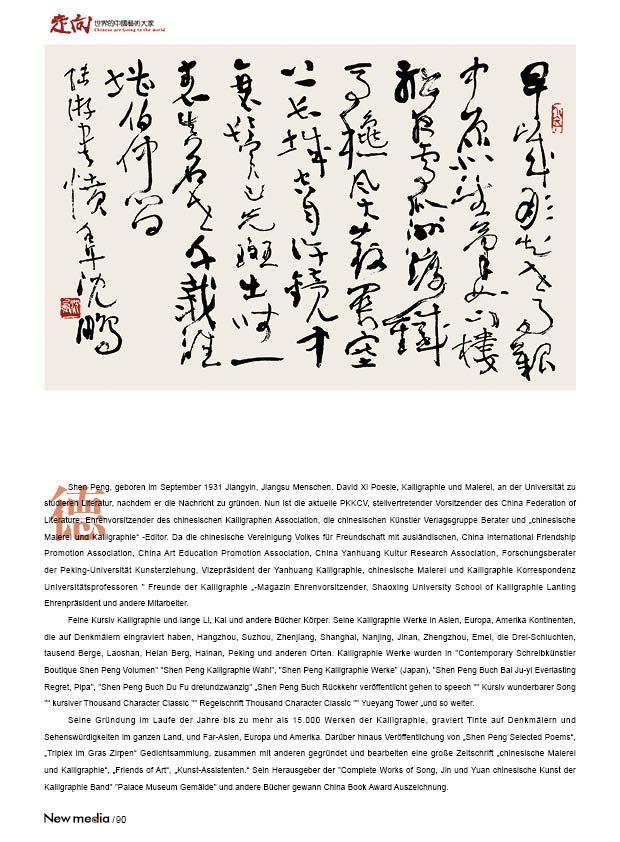 走向 世界的中國藝術大家
Chinese art Going to the world
早歲那知世事艱
中原北望氣如山樓
船夜雪瓜洲渡鐵
馬秋風大散關塞
上長城空自許鏡中
衰鬢已先斑出師一
表真名世千載誰
堪伯仲間
陸游書憤 沈鵬
德
Shen Peng, geboren im September 1931 Jiangyin, Jiangsu Menschen. David Xi Poesie, Kalligraphie und Malerei, an der Universität zu
studieren Literatur, nachdem er die Nachricht zu gründen. Nun ist die aktuelle PKKCV, stellvertretender Vorsitzender des China Federation of
Literature, Ehrenvorsitzender des chinesischen Kalligraphen Association, die chinesischen Künstler Verlagsgruppe Berater und „chinesische
Malerei und Kalligraphie“ -Editor. Da die chinesische Vereinigung Volkes für Freundschaft mit ausländischen, China International Friendship
Promotion Association, China Art Education Promotion Association, China Yanhuang Kultur Research Association, Forschungsberater
der Peking-Universität Kunsterziehung, Vizepräsident der Yanhuang Kalligraphie, chinesische Malerei und Kalligraphie Korrespondenz
Universitätsprofessoren " Freunde der Kalligraphie „-Magazin Ehrenvorsitzender, Shaoxing University School of Kalligraphie Lanting
Ehrenpräsident und andere Mitarbeiter.
Feine Kursiv Kalligraphie und lange Li, Kai und andere Bücher Körper. Seine Kalligraphie Werke in Asien, Europa, Amerika Kontinenten,
die auf Denkmälern eingraviert haben, Hangzhou, Suzhou, Zhenjiang, Shanghai, Nanjing, Jinan, Zhengzhou, Emei, die Drei-Schluchten,
tausend Berge, Laoshan, Helan Berg, Hainan, Peking und anderen Orten. Kalligraphie Werke wurden in "Contemporary Schreibkünstler
Boutique Shen Peng Volumen" "Shen Peng Kalligraphie Wahl", "Shen Peng Kalligraphie Werke" (Japan), "Shen Peng Buch Bai Ju-yi Everlasting
Regret, Pipa", "Shen Peng Buch Du Fu dreiundzwanzig" „Shen Peng Buch Rückkehr veröffentlicht gehen to speech "" Kursiv wunderbarer Song
"" kursiver Thousand Character Classic "" Regelschrift Thousand Character Classic "" Yueyang Tower „und so weiter.
Seine Gründung im Laufe der Jahre bis zu mehr als 15.000 Werken der Kalligraphie, graviert Tinte auf Denkmälern und
Sehenswürdigkeiten im ganzen Land, und Far-Asien, Europa und Amerika. Darüber hinaus Veröffentlichung von „Shen Peng Selected Poems“,
„Triplex im Gras Zirpen“ Gedichtsammlung, zusammen mit anderen gegründet und bearbeiten eine große Zeitschrift „chinesische Malerei
und Kalligraphie“, „Friends of Art“, „Kunst-Assistenten.“ Sein Herausgeber der "Complete Works of Song, Jin und Yuan chinesische Kunst der
Kalligraphie Band" "Palace Museum Gemälde" und andere Bücher gewann China Book Award Auszeichnung.
New media /90